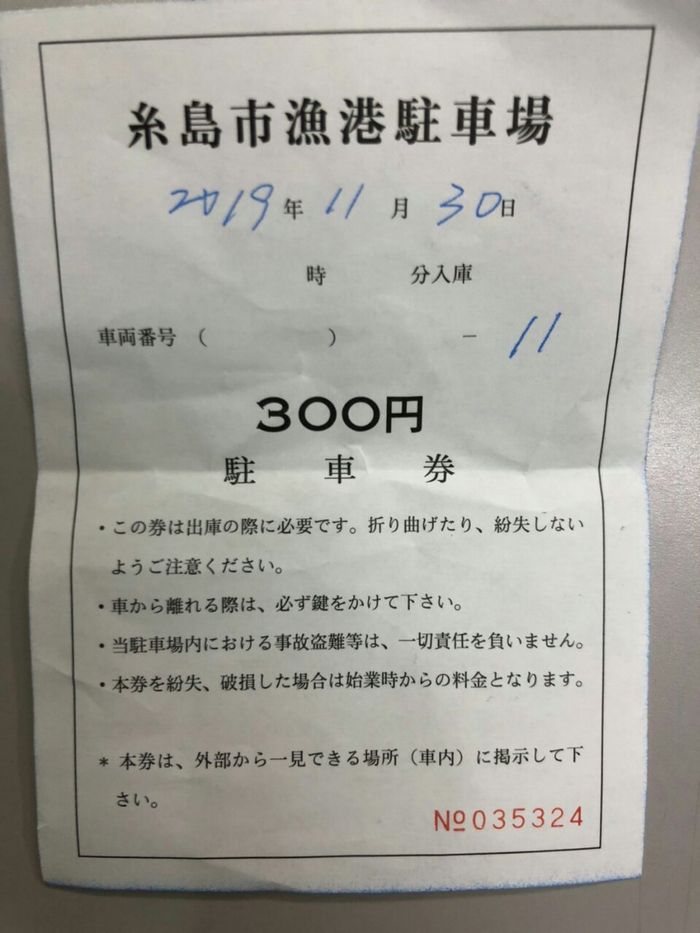 糸島市漁港駐車場
2019年 11月 30日
時 分入庫
車両番号 ( ) − 11
300円
駐 車 券
・この券は出庫の際に必要です。折り曲げたり、紛失しない
ようご注意ください。
・車から離れる際は、必ず鍵をかけて下さい。
・当駐車場内における事故盗難等は、一切責任を負いません。
・本券を紛失、破損した場合は始業時からの料金となります。
* 本券は、外部から一見できる場所（車内）に掲示して下
さい。
№035324